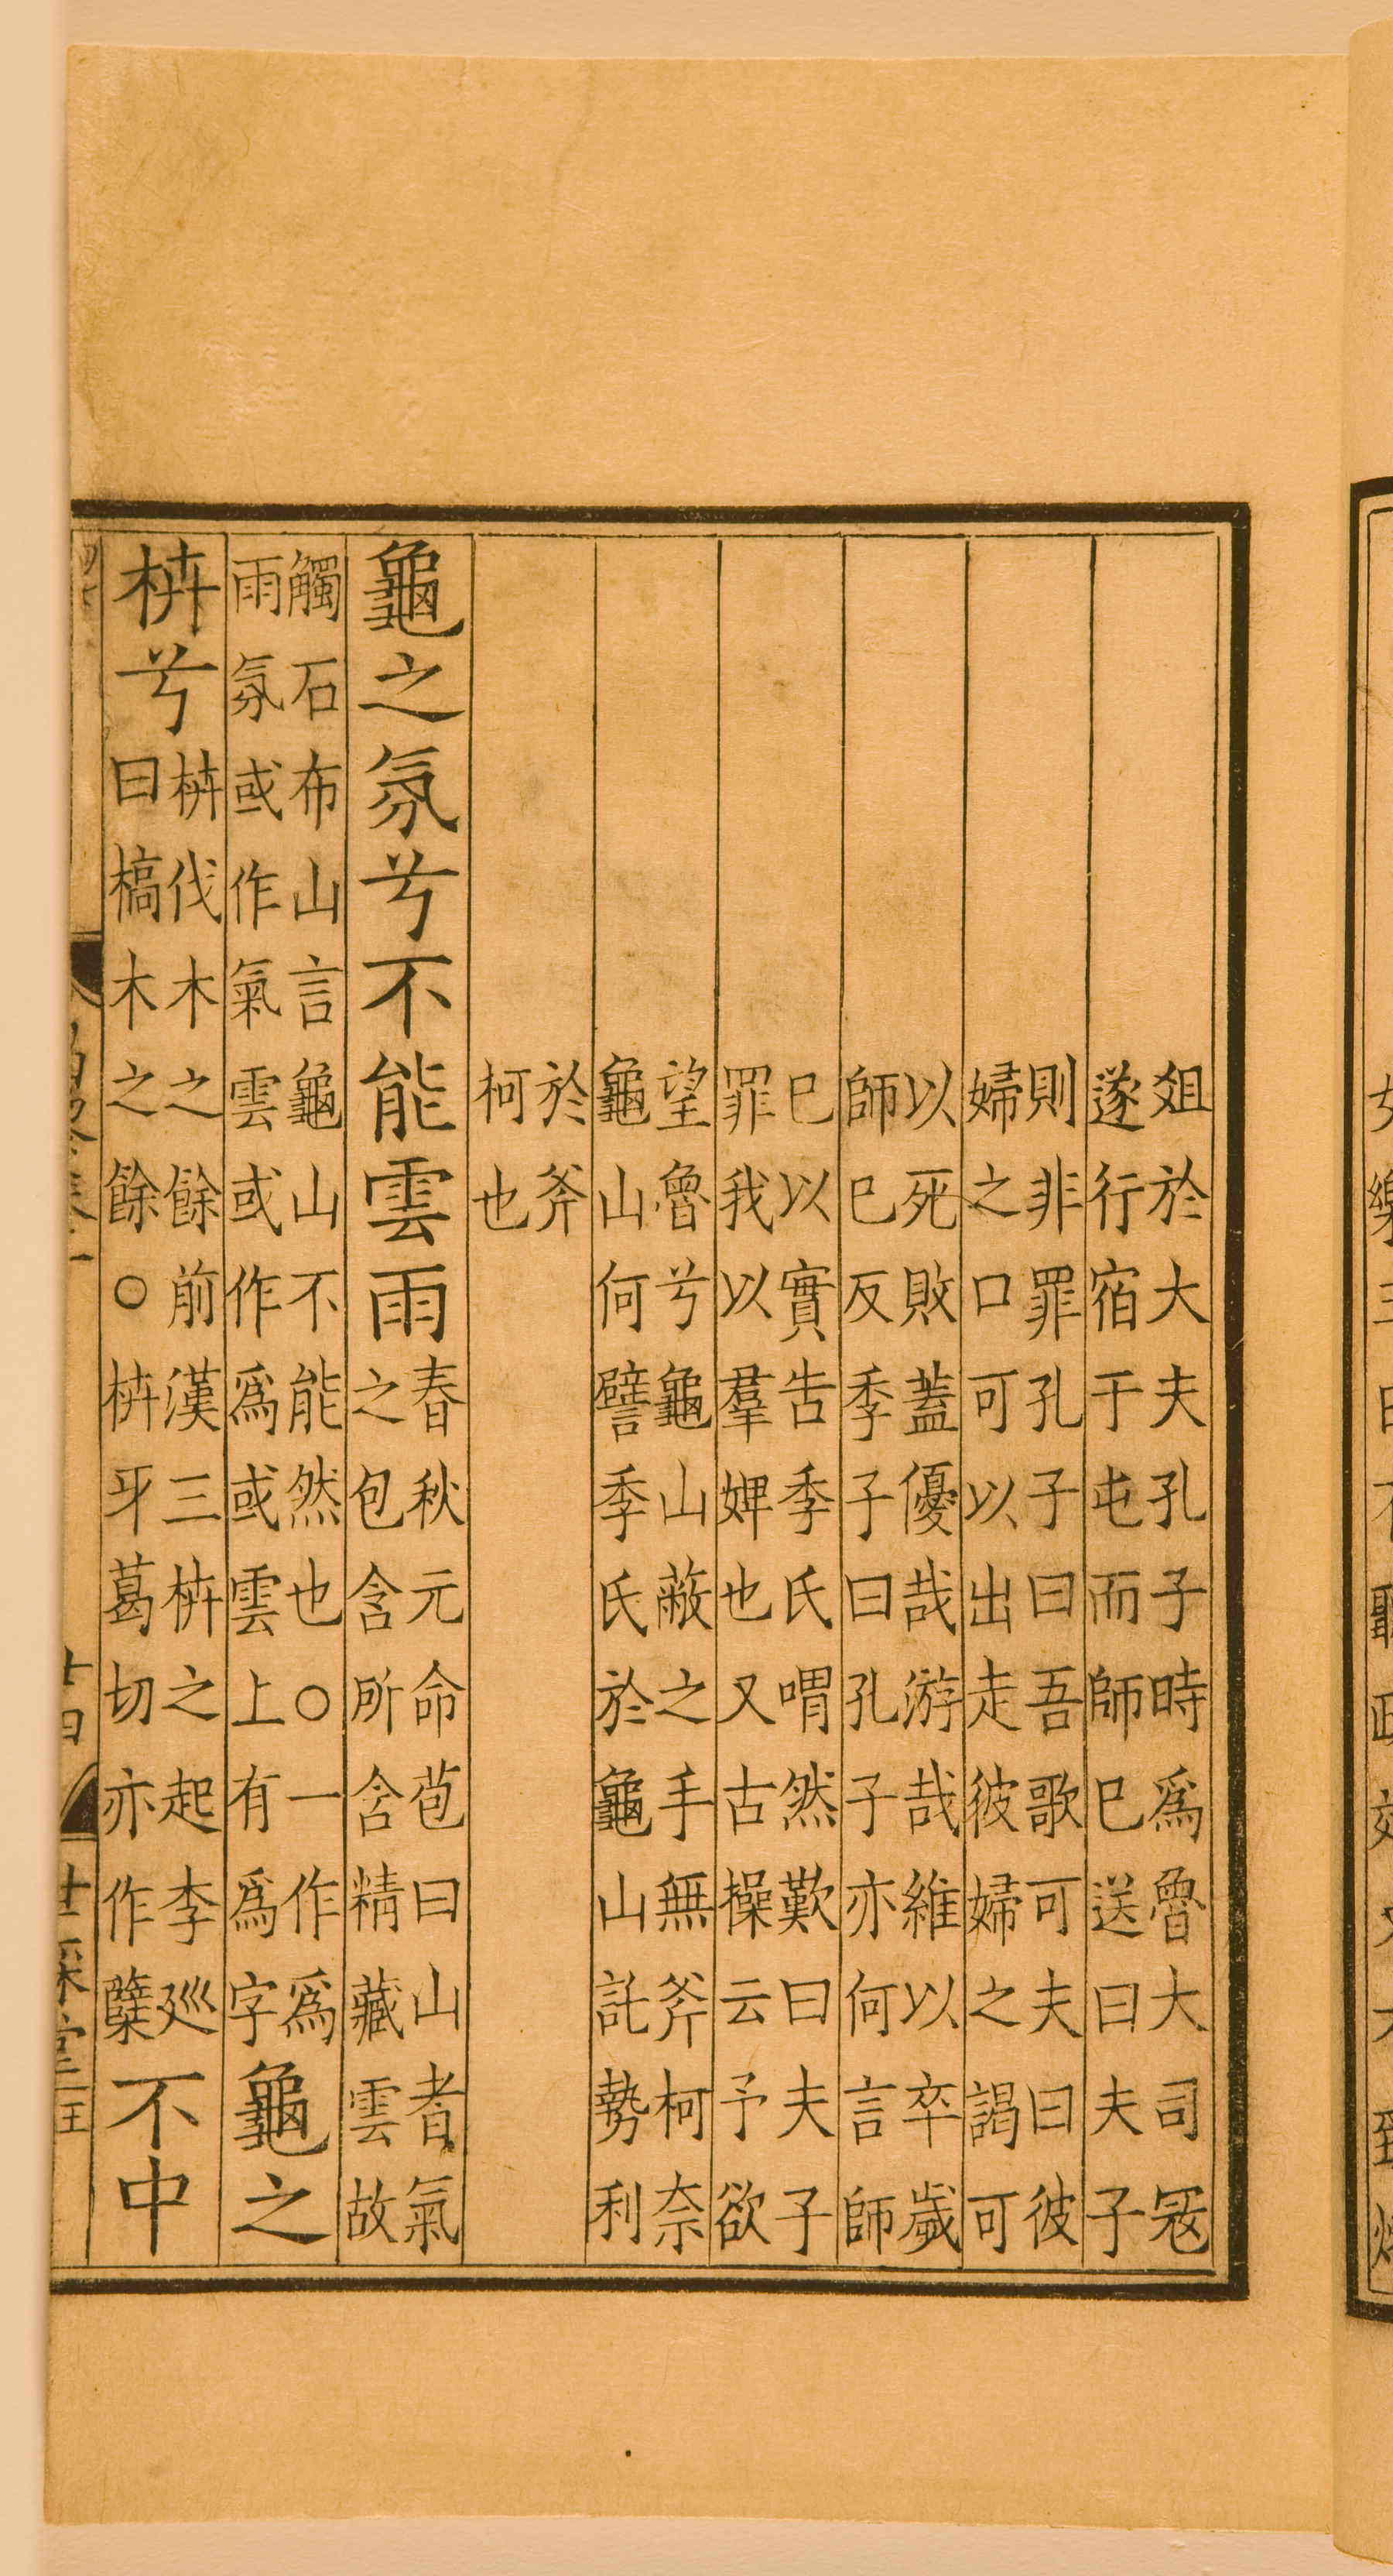 俎於大夫孔子時為魯大司冦
遂行宿于屯而師巳送曰夫子
則非罪孔子曰吾歌可夫曰彼
婦之口可以出走彼婦之謁可
以死敗蓋優哉游哉維以卒歲
師巳反季子曰孔子亦何言師
巳以實告季氏喟然歎曰夫子
罪我以羣婢也又古操云予欲
望魯兮龜山蔽之手無斧柯奈
龜山何譬季氏於龜山託勢利
於斧
柯也
龜之氛兮不能雲雨
春秋元命苞曰山者氣
之包含所含精藏雲故
觸石布山言龜山不能然也○一作為
雨氛或作氣雲或作為或雲上有為字
龜之
枿兮
枿伐木之餘前漢三枿之起李巡
曰槁木之餘○枿牙葛切亦作櫱
不中